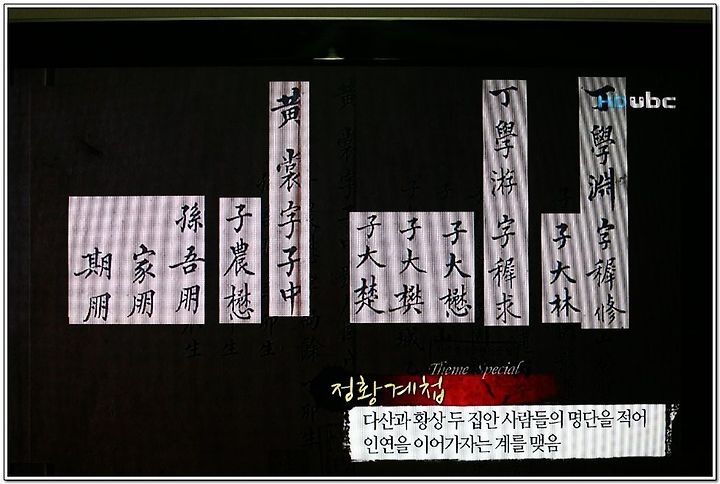 HD ubc
丁學淵字穉修
子大林
丁學游字穉求
子大懋
子大樊
子大楚
黃裳字子中
子農懋
孫吾朋
家朋
期朋
Theme Special
정황계첩
다산과 황상 두 집안 사람들의 명단을 적어
인연을 이어가자는 계를 맺음